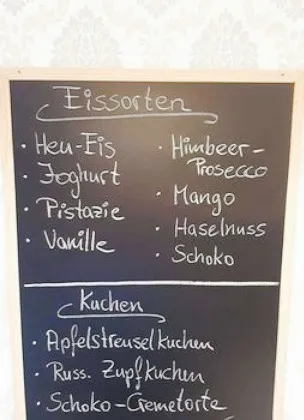 Eissorten
· Heu-Eis
· Joghurt
· Pistazie
· Vanille
· Himbeer-
Prosecco
· Mango
· Haselnuss
· Schoko
Kuchen
· Apfelstreuselkuchen
· Russ. Zupfkuchen
· Schoko-Cremetorte